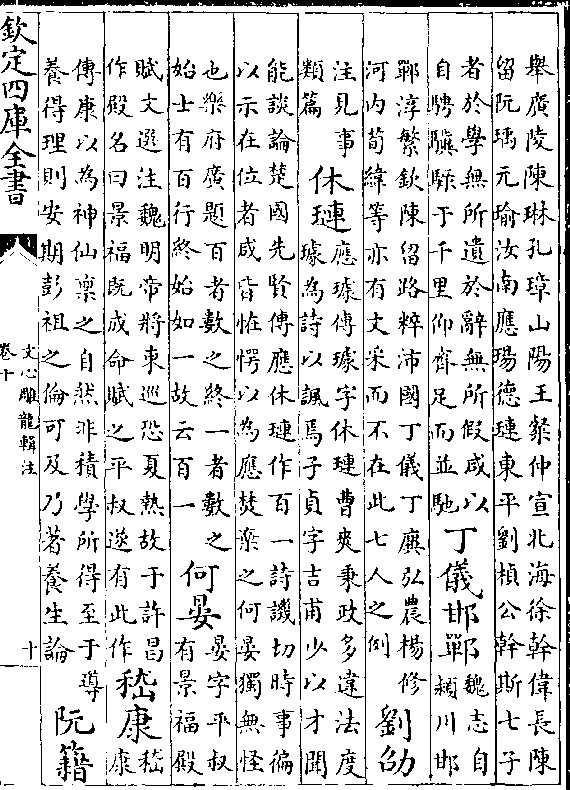 舉廣陵陳琳孔璋山陽王粲仲宣北海徐幹偉長陳
留阮瑀元瑜汝南應瑒德璉東平劉楨公幹斯七子
者於學無所遺於辭無所假咸以
自騁驥騄于千里仰齊足而並馳
丁儀邯鄲
魏志自
潁川邯
鄲淳繁欽陳留路粹沛國丁儀丁廙弘農楊修
河内荀緯等亦有文采而不在此七人之例
劉劭
注見事
類篇
休璉
應璩傳璩字休璉曹爽秉政多違法度
璩為詩以諷焉子貞字吉甫少以才聞
能談論楚國先賢傳應休璉作百一詩譏切時事徧
以示在位者咸皆恠愕以為應焚棄之何晏獨無怪
也樂府廣題百者數之終一者數之
始士有百行終始如一故云百一
何晏
晏字平叔
有景福殿
賦文選注魏明帝將東巡恐夏熱故于許昌
作殿名曰景福既成命賦之平叔遂有此作
嵇康
嵇
康
傳康以為神仙稟之自然非積學所得至于導
養得理則安期彭祖之倫可及乃著養生論
阮籍
欽定四庫全書
文心雕龍輯注
卷十
十